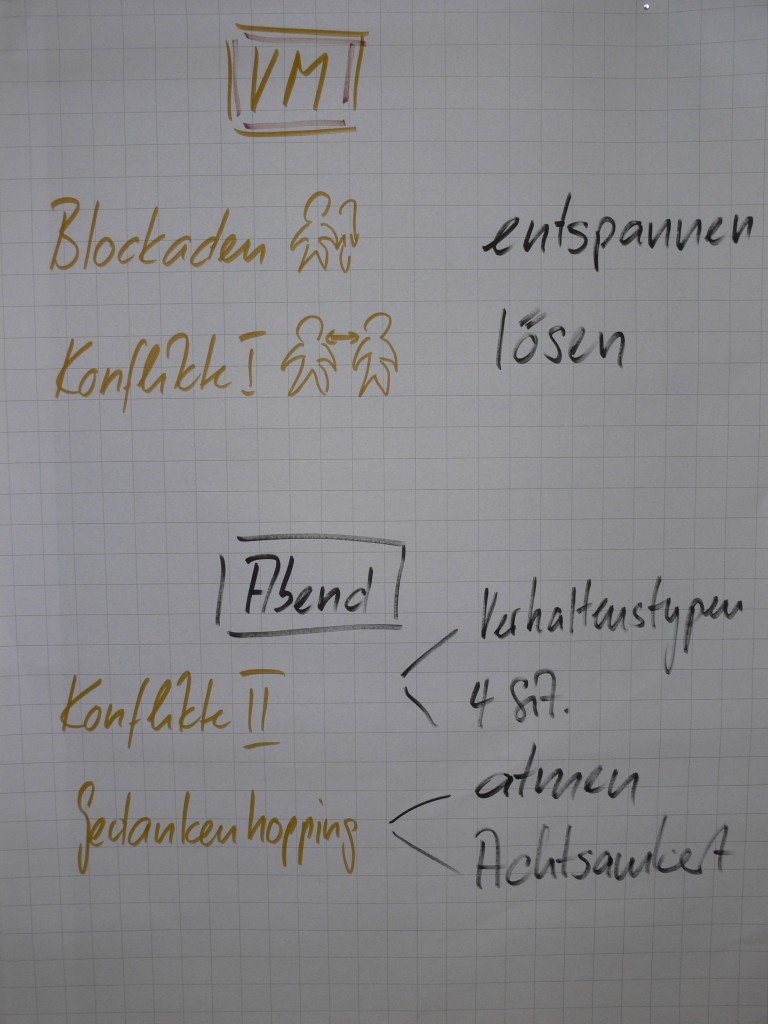 VM
Blockaden entspannen
Konflikte I lösen
Abend
Verhaltenstypen
Konflikte II 4 Sit.
atmen
Gedankenhopping
Achtsamkeit